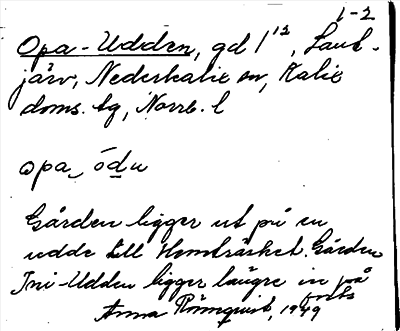 1-2
Opa-Udden, gd 1¹², Land-
järv, Nederkalix sn, Kalix
doms. tg, Norrb. l
opa, ódu
Gården ligger ut på en
udde till Hemträsket. Gården
Ini-Udden ligger längre in på
Anna Rönnquist, 1949